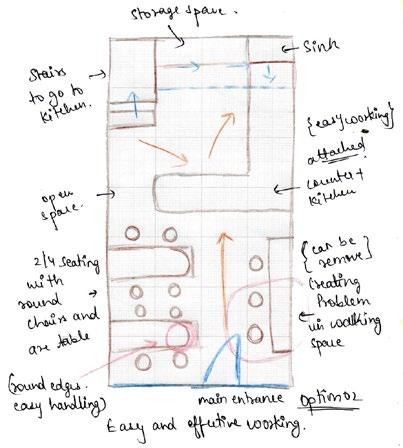 storage space.
Sinh
stairs
to go to
kitchen.
{easy working}
attached
counter +
kitchen
open
space.
2/4 seating
with
round
chairs and
are table
{can be
remove}
creating
Problem
in walking
space
(round edges.
easy handling)
main entrance
option 02
Easy and effective working.